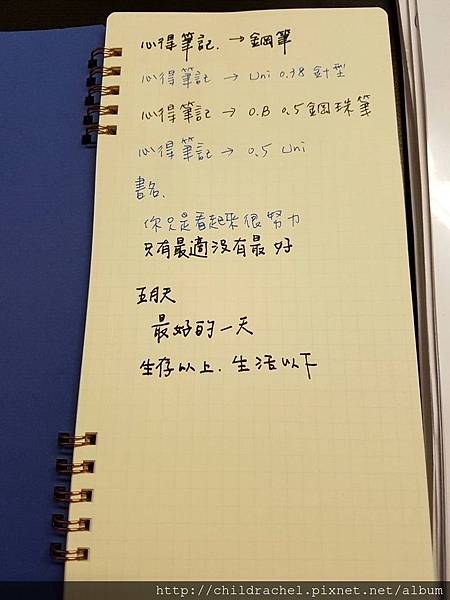 心得筆記. → 鋼筆
心得筆記 → Uni 0.38 針型
心得筆記 → O.B 0.5 鋼珠筆
心得筆記 → 0.5 Uni
書名.
你只是看起來很努力
只有最適沒有最好
五月天
最好的一天
生存以上. 生活以下
http://childrachel.pixnet.net/album